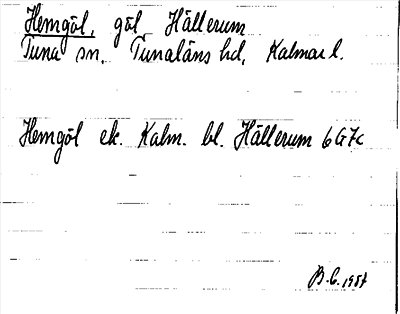 Hemgöl, göl, Hällerum
Tuna sn. Tunaläns hd, Kalmar l.
Hemgöl ek. Kalm. bl. Hällerum 6G7c
B.G. 1957